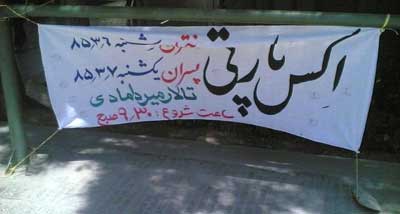 اکس پارتی
دختران شنبه ۸۵،۳،۶
پسران یکشنبه ۸۵،۳،۷
تالار میردامادی
ساعت شروع: ۹،۳۰ صبح